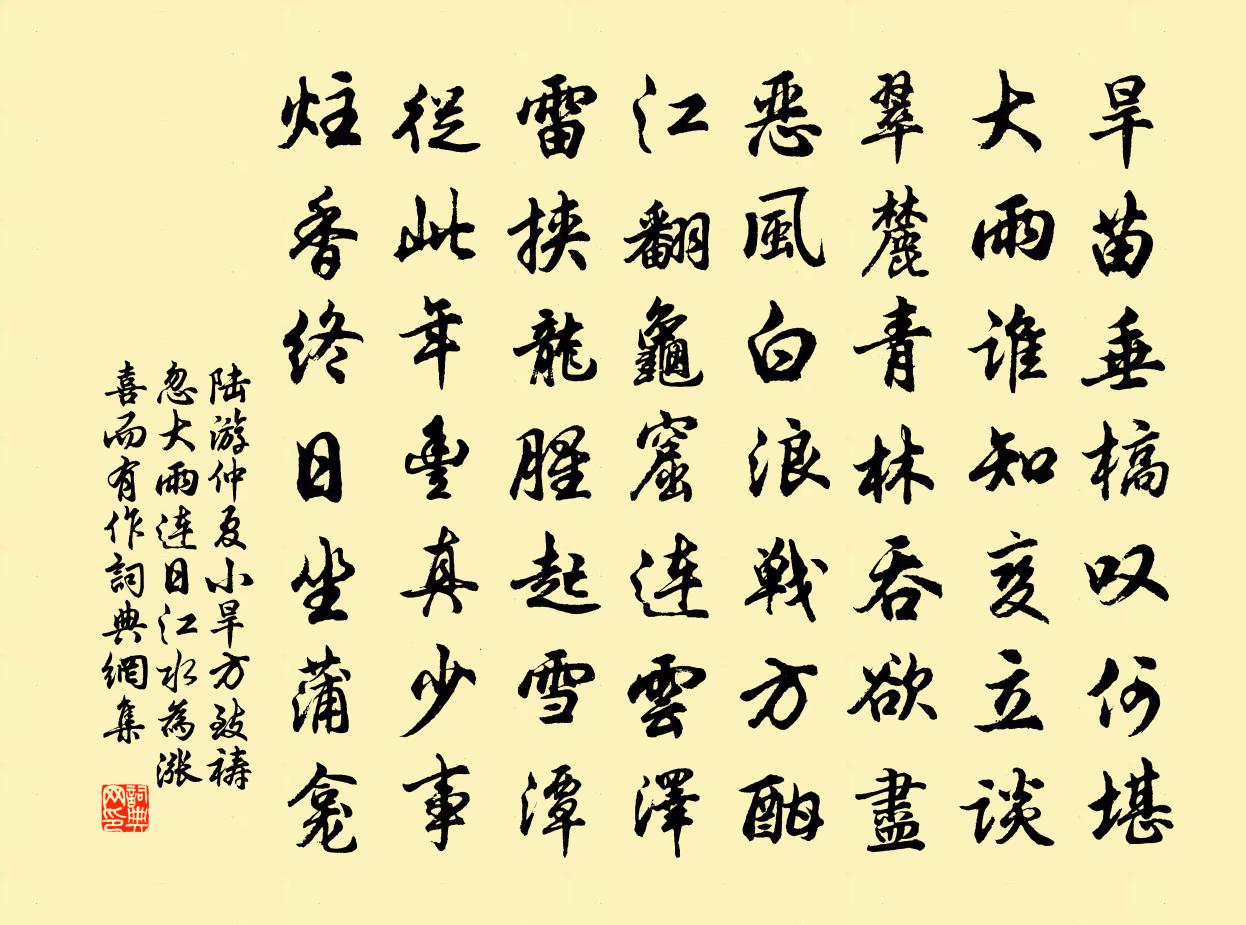 旱苗垂槁叹何堪
大雨谁知变立谈
翠麓青林吞欲盡
恶風白浪戦方酣
江翻龜窟連雲澤
雷挟龍腥起雪潭
從此年豊真少事
炷香终日坐蒲龛
陆游仲夏小旱方致祷
忽大雨连日江水為漲
喜而有作詞典網集
詞典网印